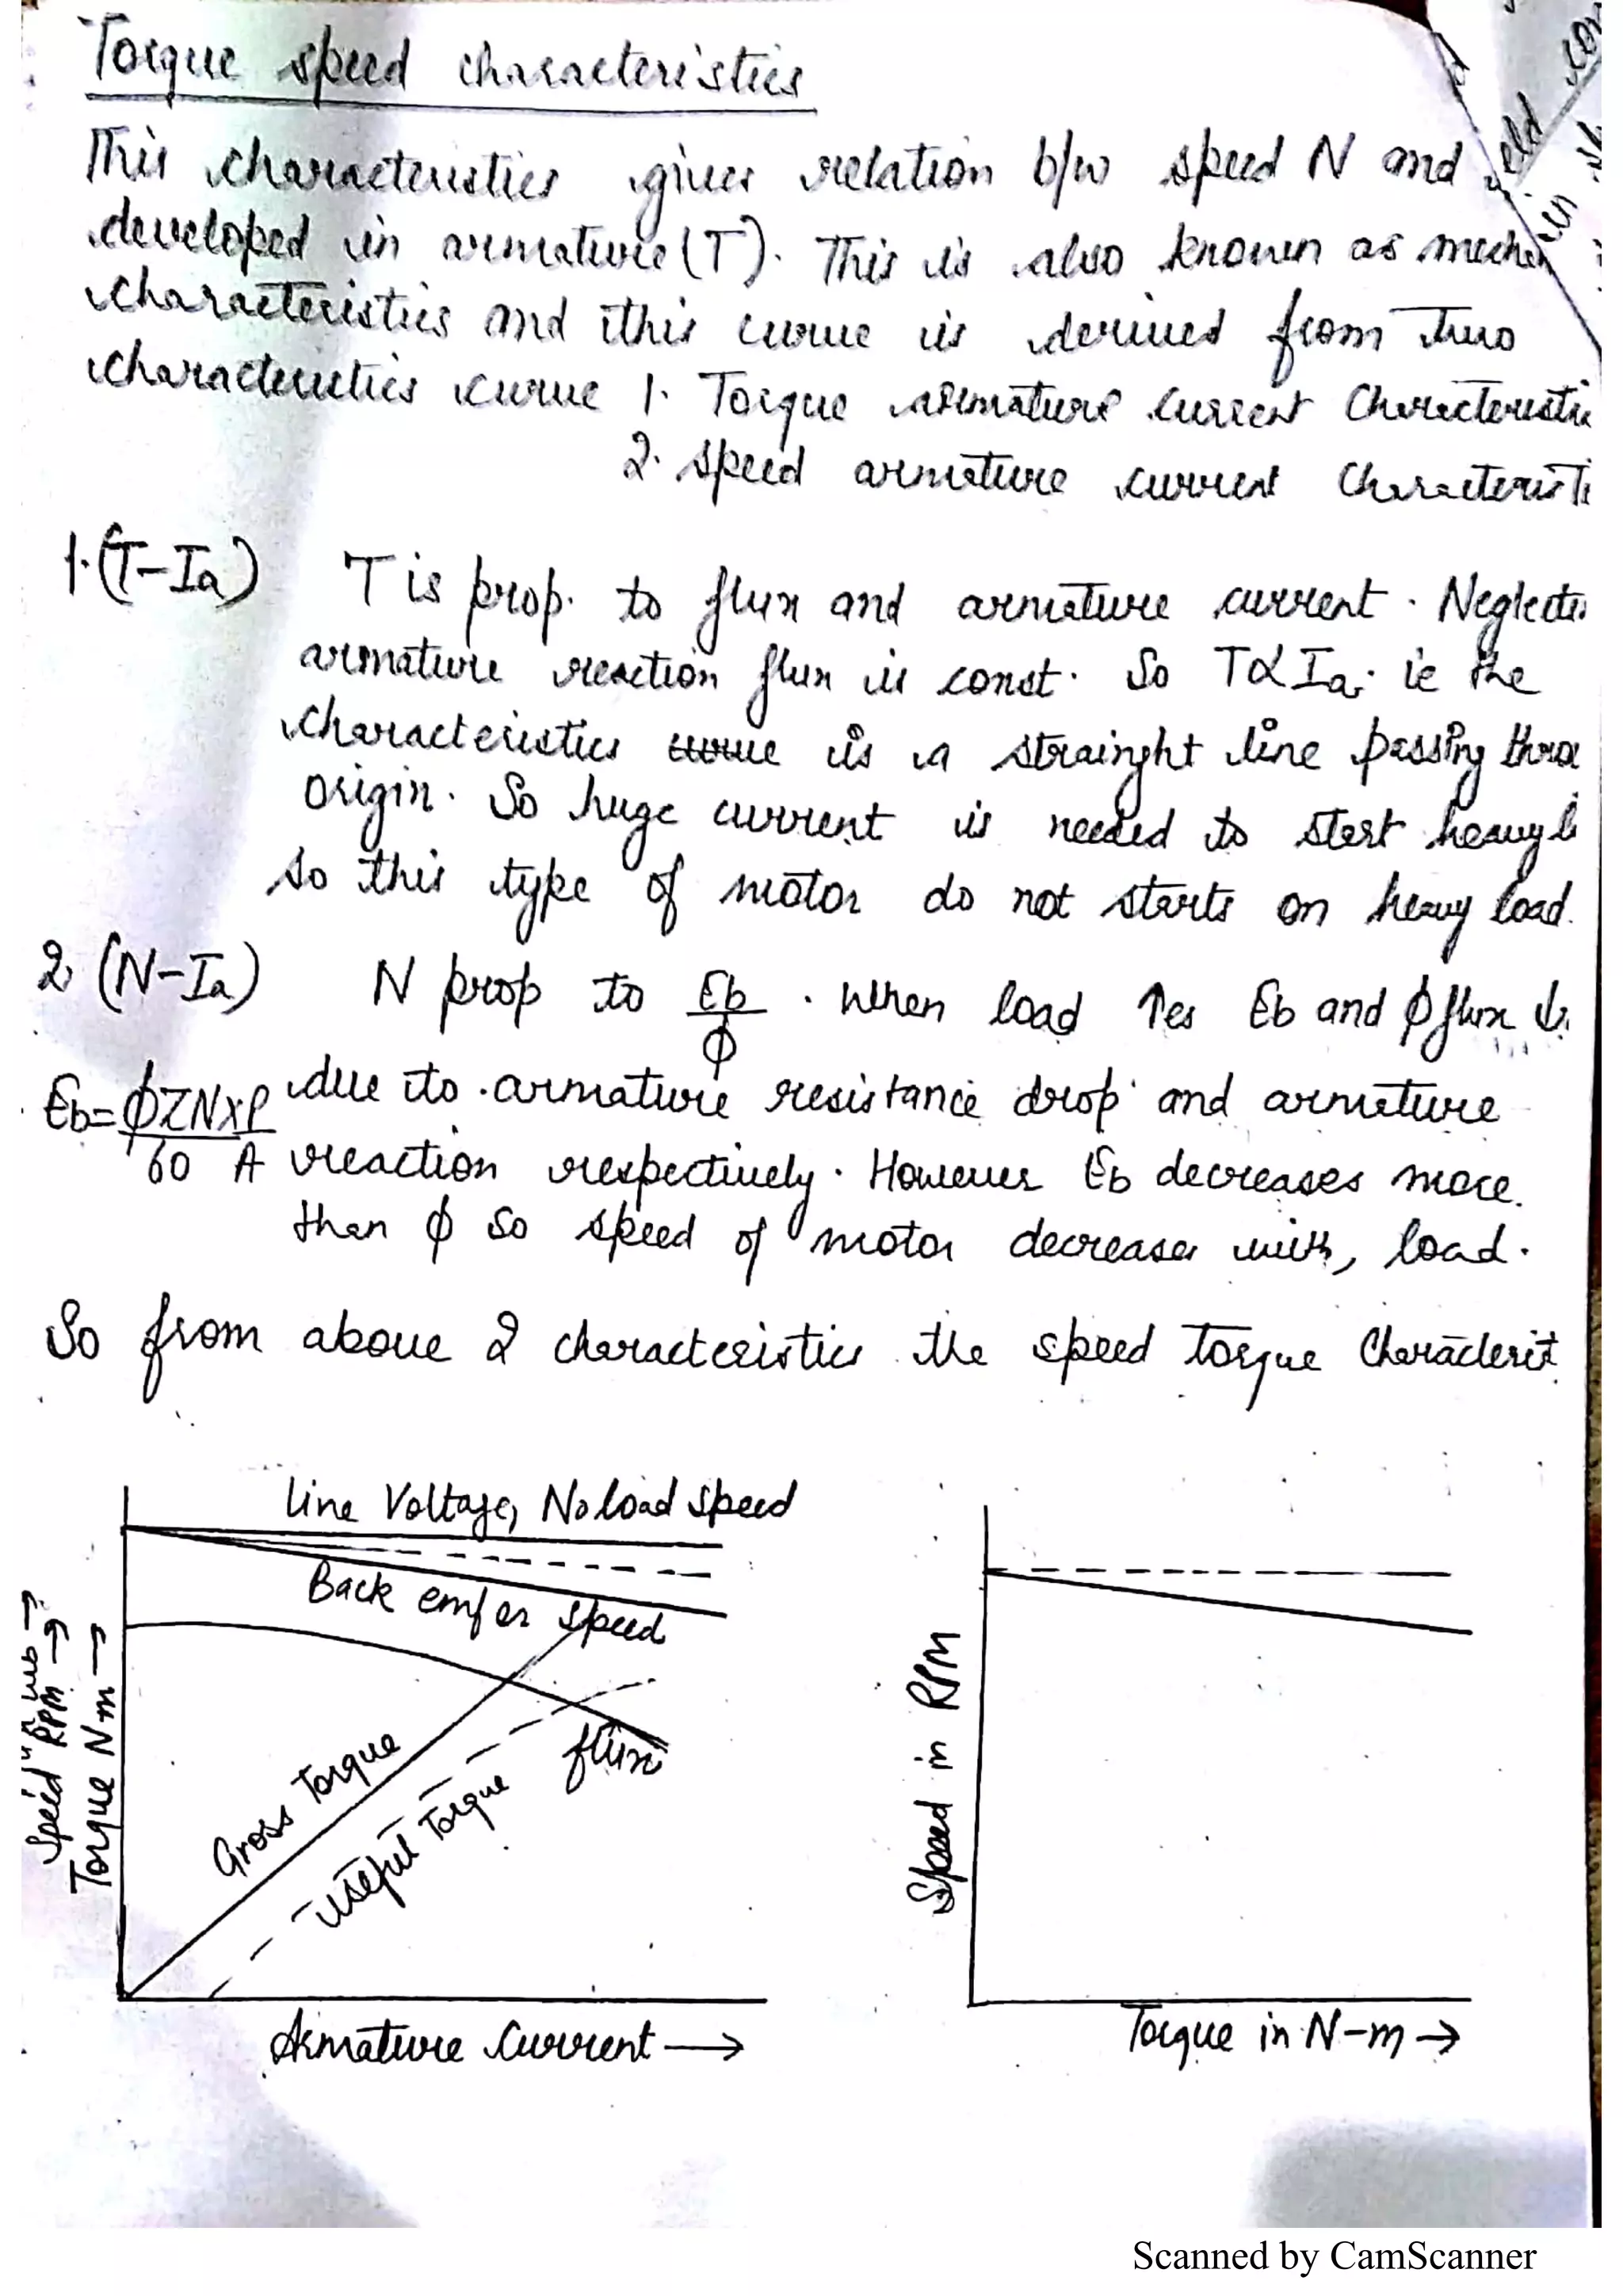 Torque speed characteristics
This characteristics gives relation b/w speed N and
developed in armature (T). This is also known as mechan
characteristics and this curve is derived from two
characteristics curve 1. Torque armature current Characteristic
2. speed armature current Characteristi
1. (T-Ia) T is prop. to flux and armature current. Neglecti
armature reaction flux is const. So T∝Ia. ie the
characteristics is a strainght line passing throu
origin. So huge current is needed to start heavy l
so this type of motor do not starts on heavy load.
2. (N-Ia) N prop to Eb/ϕ. When load ↑es Eb and ϕ flux ↓
Eb=ϕZNxP/60 A due to armature resistance drop and armature
reaction respectively. However Eb decreases more
than ϕ so speed of motor decreases with load.
So from above 2 characteristics the speed torque Characterist
Line Voltage, No load speed
Back emf or speed
flux
Gross Torque
Useful Torque
Speed RPM →
Torque Nm →
Armature Current →
Speed in RPM
Torque in N-m →
eld
in
Scanned by CamScanner